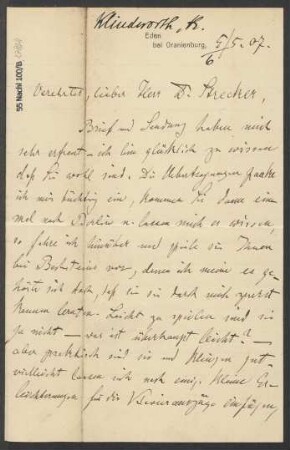 Klindworth, K.
Eden
bei Oranienburg,
5/5. 07.
6
55 Nachl 100/B
Verehrter, lieber Herr Dr. Strecker,
Brief und Sendung haben mich
sehr erfreut – ich bin glücklich zu wissen
daß Sie wohl sind. Die Uebertragungen
ich mir tüchtig ein, kommen Sie dann ein
mal nach Berlin u. lassen mich es wissen,
so fahre ich hinüber und spiele sie Ihnen
bei Bechsteins vor, denn ich meine es ge-
hörte sich doch, daß Sie sie durch mich zuerst
kennen lernten. Leicht zu spielen sind sie
ja nicht – was ist überhaupt leicht? –
aber praktisch sind sie und klingen gut
vielleicht lassen sich noch einige kleine Er-
leichterungen für die Clavierauszüge einfügen